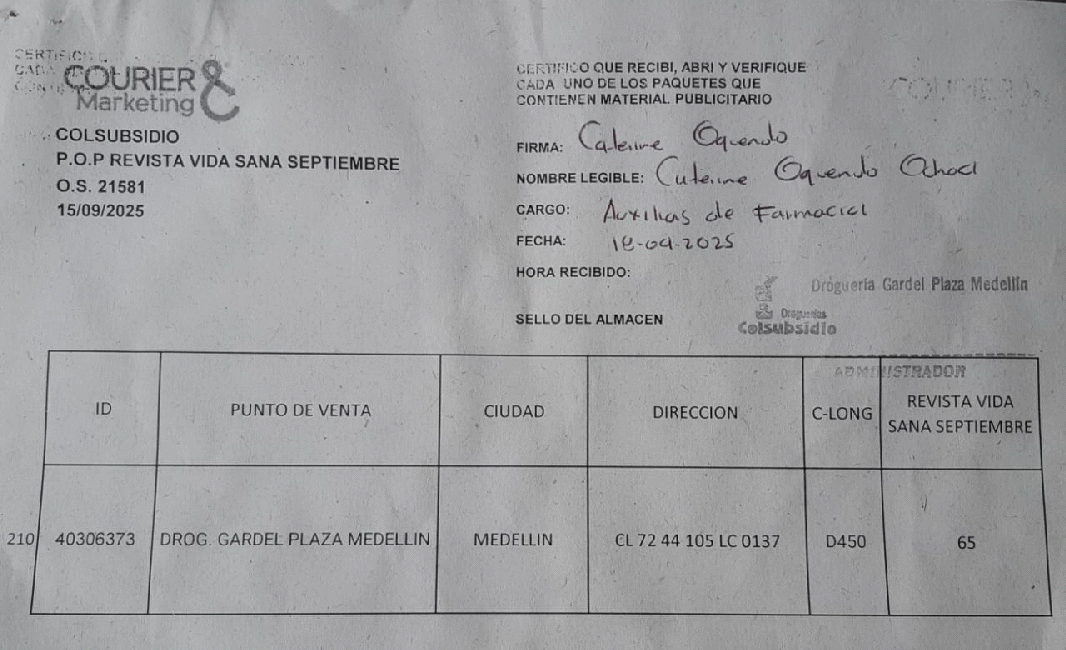 COURIER &
Marketing
COLSUBSIDIO
P.O.P REVISTA VIDA SANA SEPTIEMBRE
O.S. 21581
15/09/2025
CERTIFICO QUE RECIBI, ABRI Y VERIFIQUE
CADA UNO DE LOS PAQUETES QUE
CONTIENEN MATERIAL PUBLICITARIO
FIRMA: Caterine Oquendo
NOMBRE LEGIBLE: Caterine Oquendo Ochoa
CARGO: Auxiliar de Farmacia
FECHA: 18-09-2025
HORA RECIBIDO:
SELLO DEL ALMACEN
Droguería Gardel Plaza Medellín
Droguerías
Colsubsidio
ADMINISTRADOR
ID PUNTO DE VENTA CIUDAD DIRECCION C-LONG REVISTA VIDA SANA SEPTIEMBRE
210 40306373 DROG. GARDEL PLAZA MEDELLIN MEDELLIN CL 72 44 105 LC 0137 D450 65